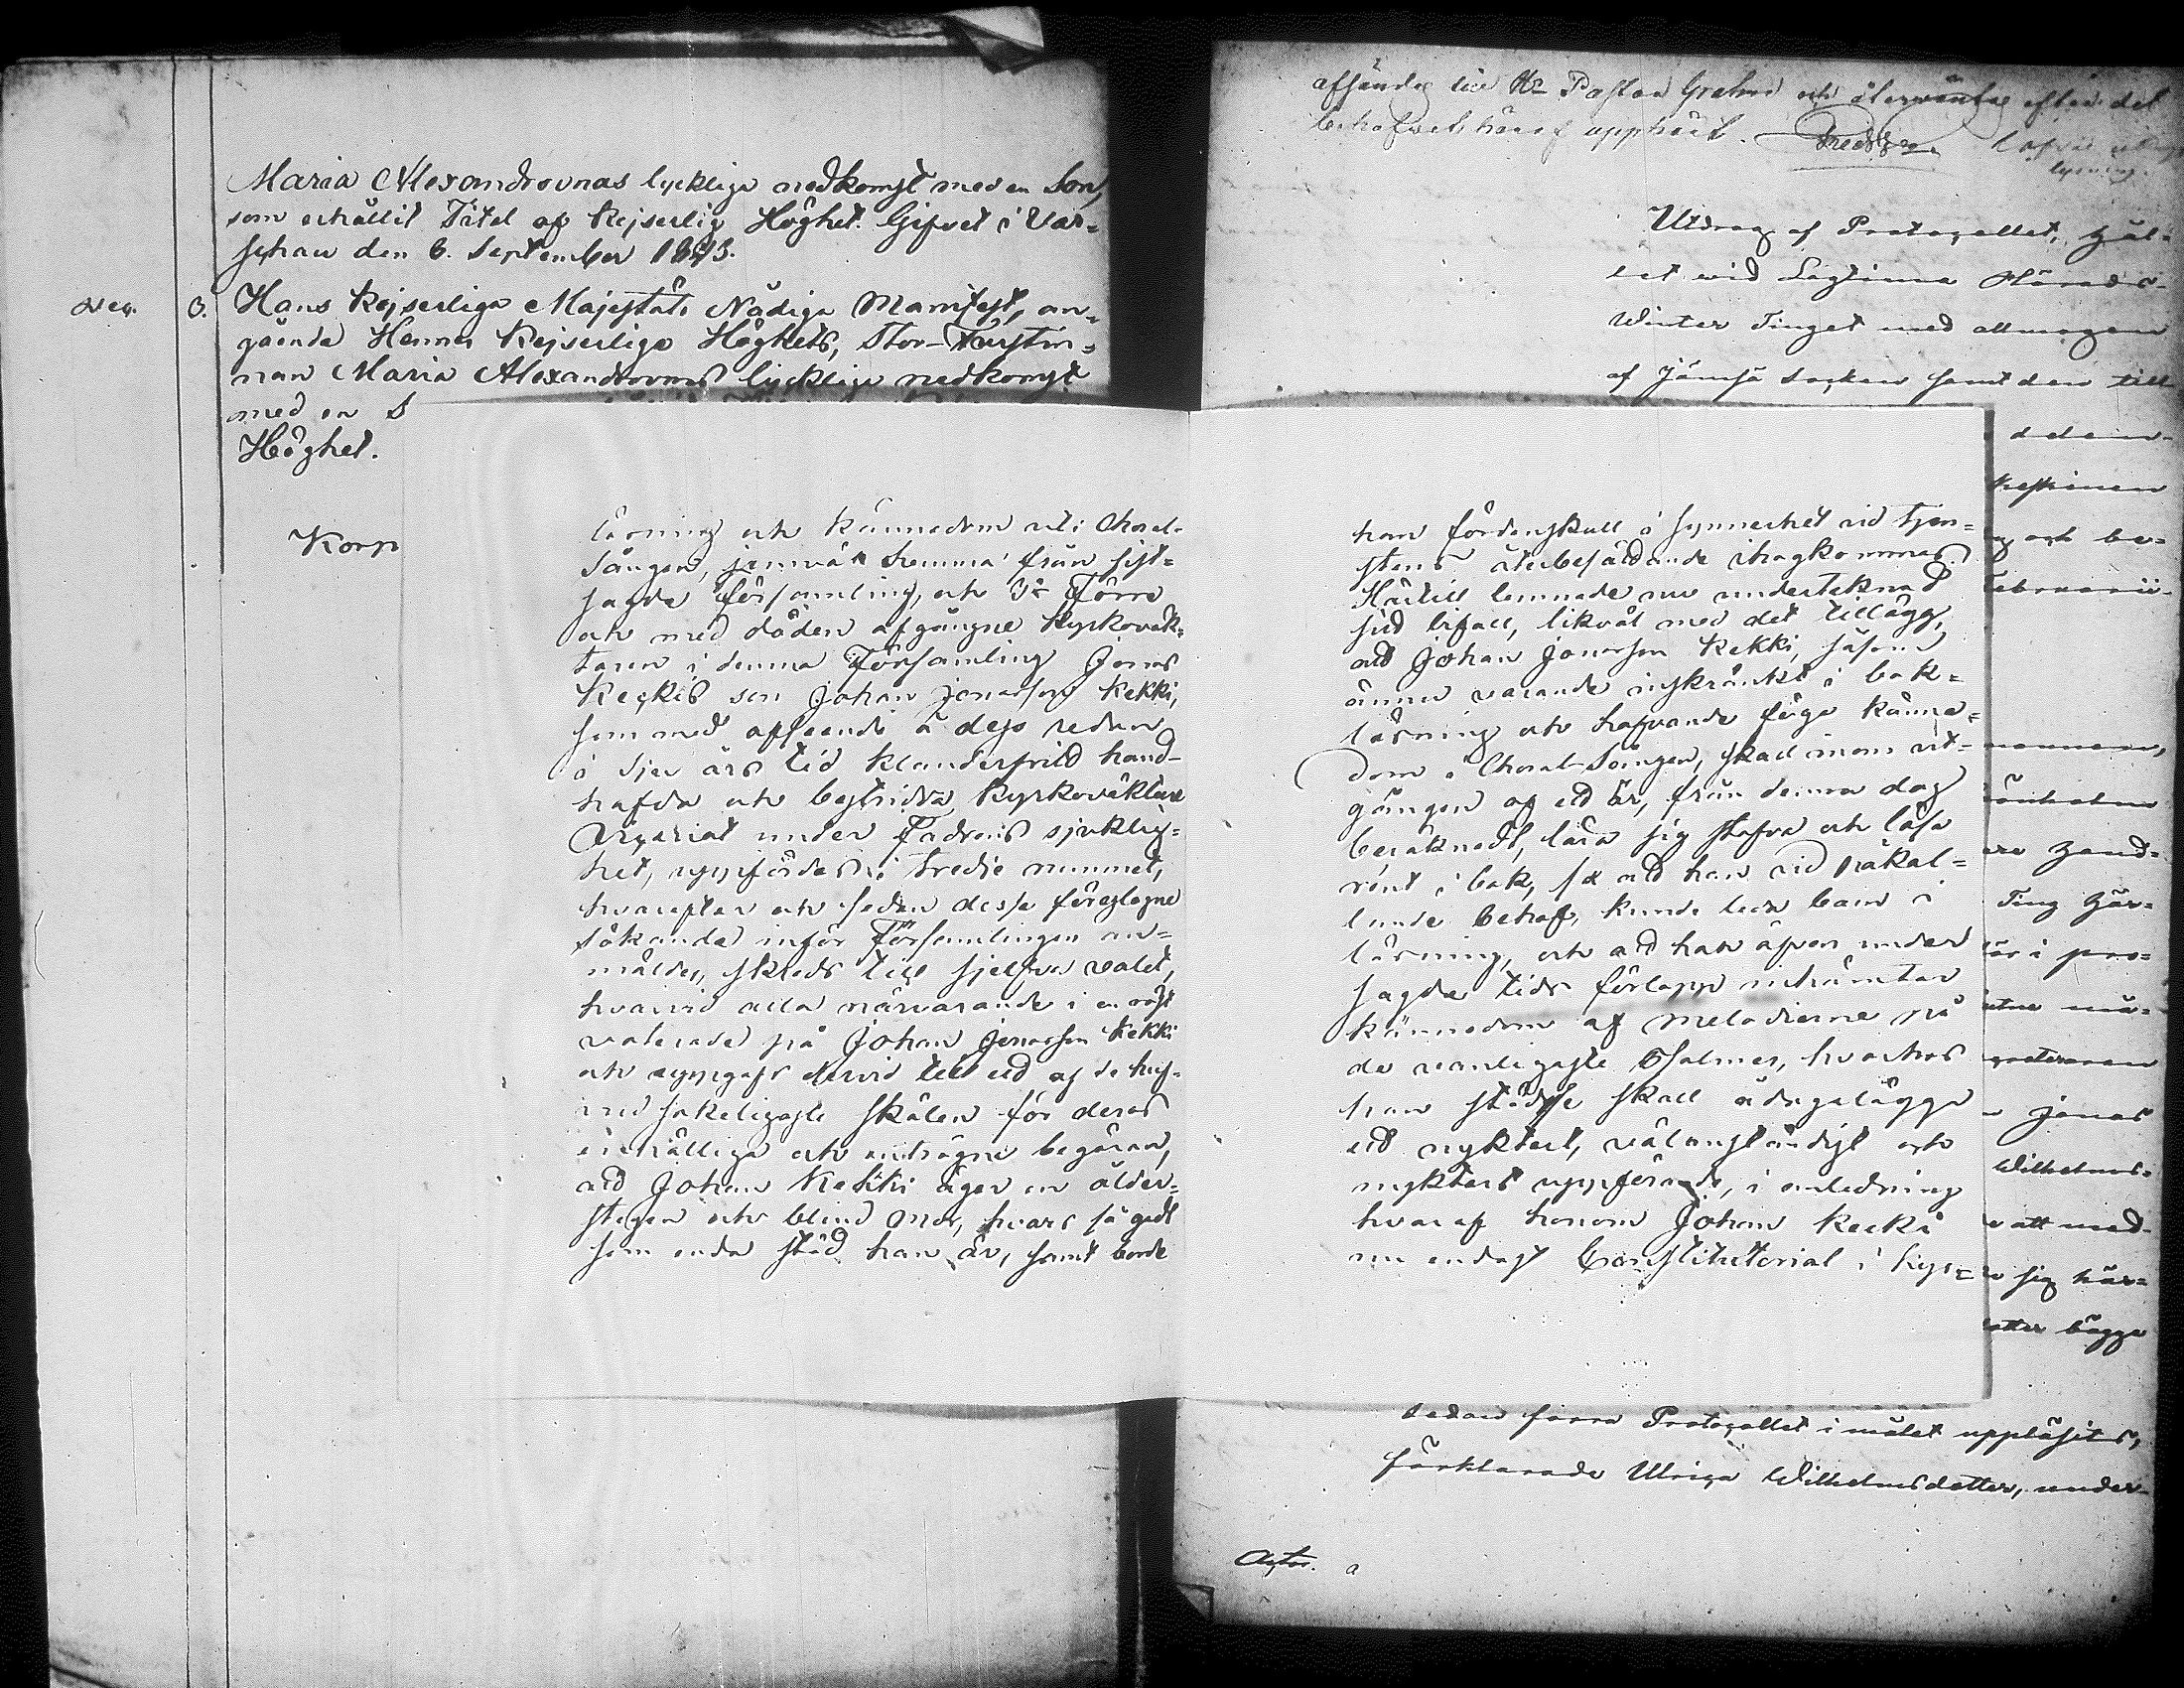 Maria Alexandrovnas lyckliga nedkomst med en Son,
som erhållit Titel af Kejserlig Höghet. Gifvet i War-
schau den 6. September 1843.
3. Hans Kejserliga Majestäts Nådiga Manifest, an-
gående Hennes Kejserliga Höghets, Stor-Furstin-
nan Maria Alexandrovnas lyckliga nedkomst
med en S
Höghet.
Korp
läsning och kännedom uti Choral-
Sången, jemväl hemma från sist-
sagde församling, och 3o Förre
och med döden afgångne Kyrkovak-
taren i denna Församling Jonas
Keckis son Johan Jonasson Kekki,
som med afseende å dess redan
i sju års tid klanderfritt hand-
hafda och bestridda Kyrkoväktare
Vicariat under Fadrens sjuklig-
het, uppfördes i tredje rummet,
hvarefter och sedan desse föreslagne
sökande inför Församlingen an-
mäldes, skreds till sjelfva valet,
hvarvid alla närvarande i en röst
voterade på Johan Jonasson Kekki
och uppgafs dervid till ett af de huf-
vudsakeligaste skälen för deras
enhälliga och enträgne begäran,
att Johan Kekki äger en ålder-
stegen och blind mor, hvars så godt
som enda stöd han är, samt borde
han fördenskull i synnerhet vid tjen-
stens återbesättande ihogkommas.
Härtill lemnade nu undertecknad
sitt bifall, likväl med det tillägg,
att Johan Jonasson Kekki, såsom
ännu varande inskränkt i bok-
läsning och hafvande föga känne-
dom i Choral-Sången, skall inom ut-
gången af ett år, från denna dag
beräknadt, lära sig stafva och läsa
rent i bok, så att han vid påkal-
lande behof, kunde leda barn i
läsning, och att han äfven under
sagde tids förlopp inhämtar
kännedom af melodierne på
de vanligaste Psalmer, hvarhos
han städse skall ådagalägga
ett nyktert, välanständigt och
nyktert uppförande, i anledning
hvaraf honom Johan Kecki
nu endast Constitutorial i kyr-
afsändes till Hr Pastor och återväntas efter det
behofvet häraf upphört.
Utdrag af Protocollet, hål-
let vid Lagtima Härads-
Winter Tinget med allmogen
af Jämsä Socken samt den till
keskinen
och be-
Februarii
Ting hår-
Jonas
Wilhelms-
att med-
sig här-
bägge
Sedan förra Protocollet i målet uppläsits,
förklarade Ulrica Wilhelmsdotter, under-